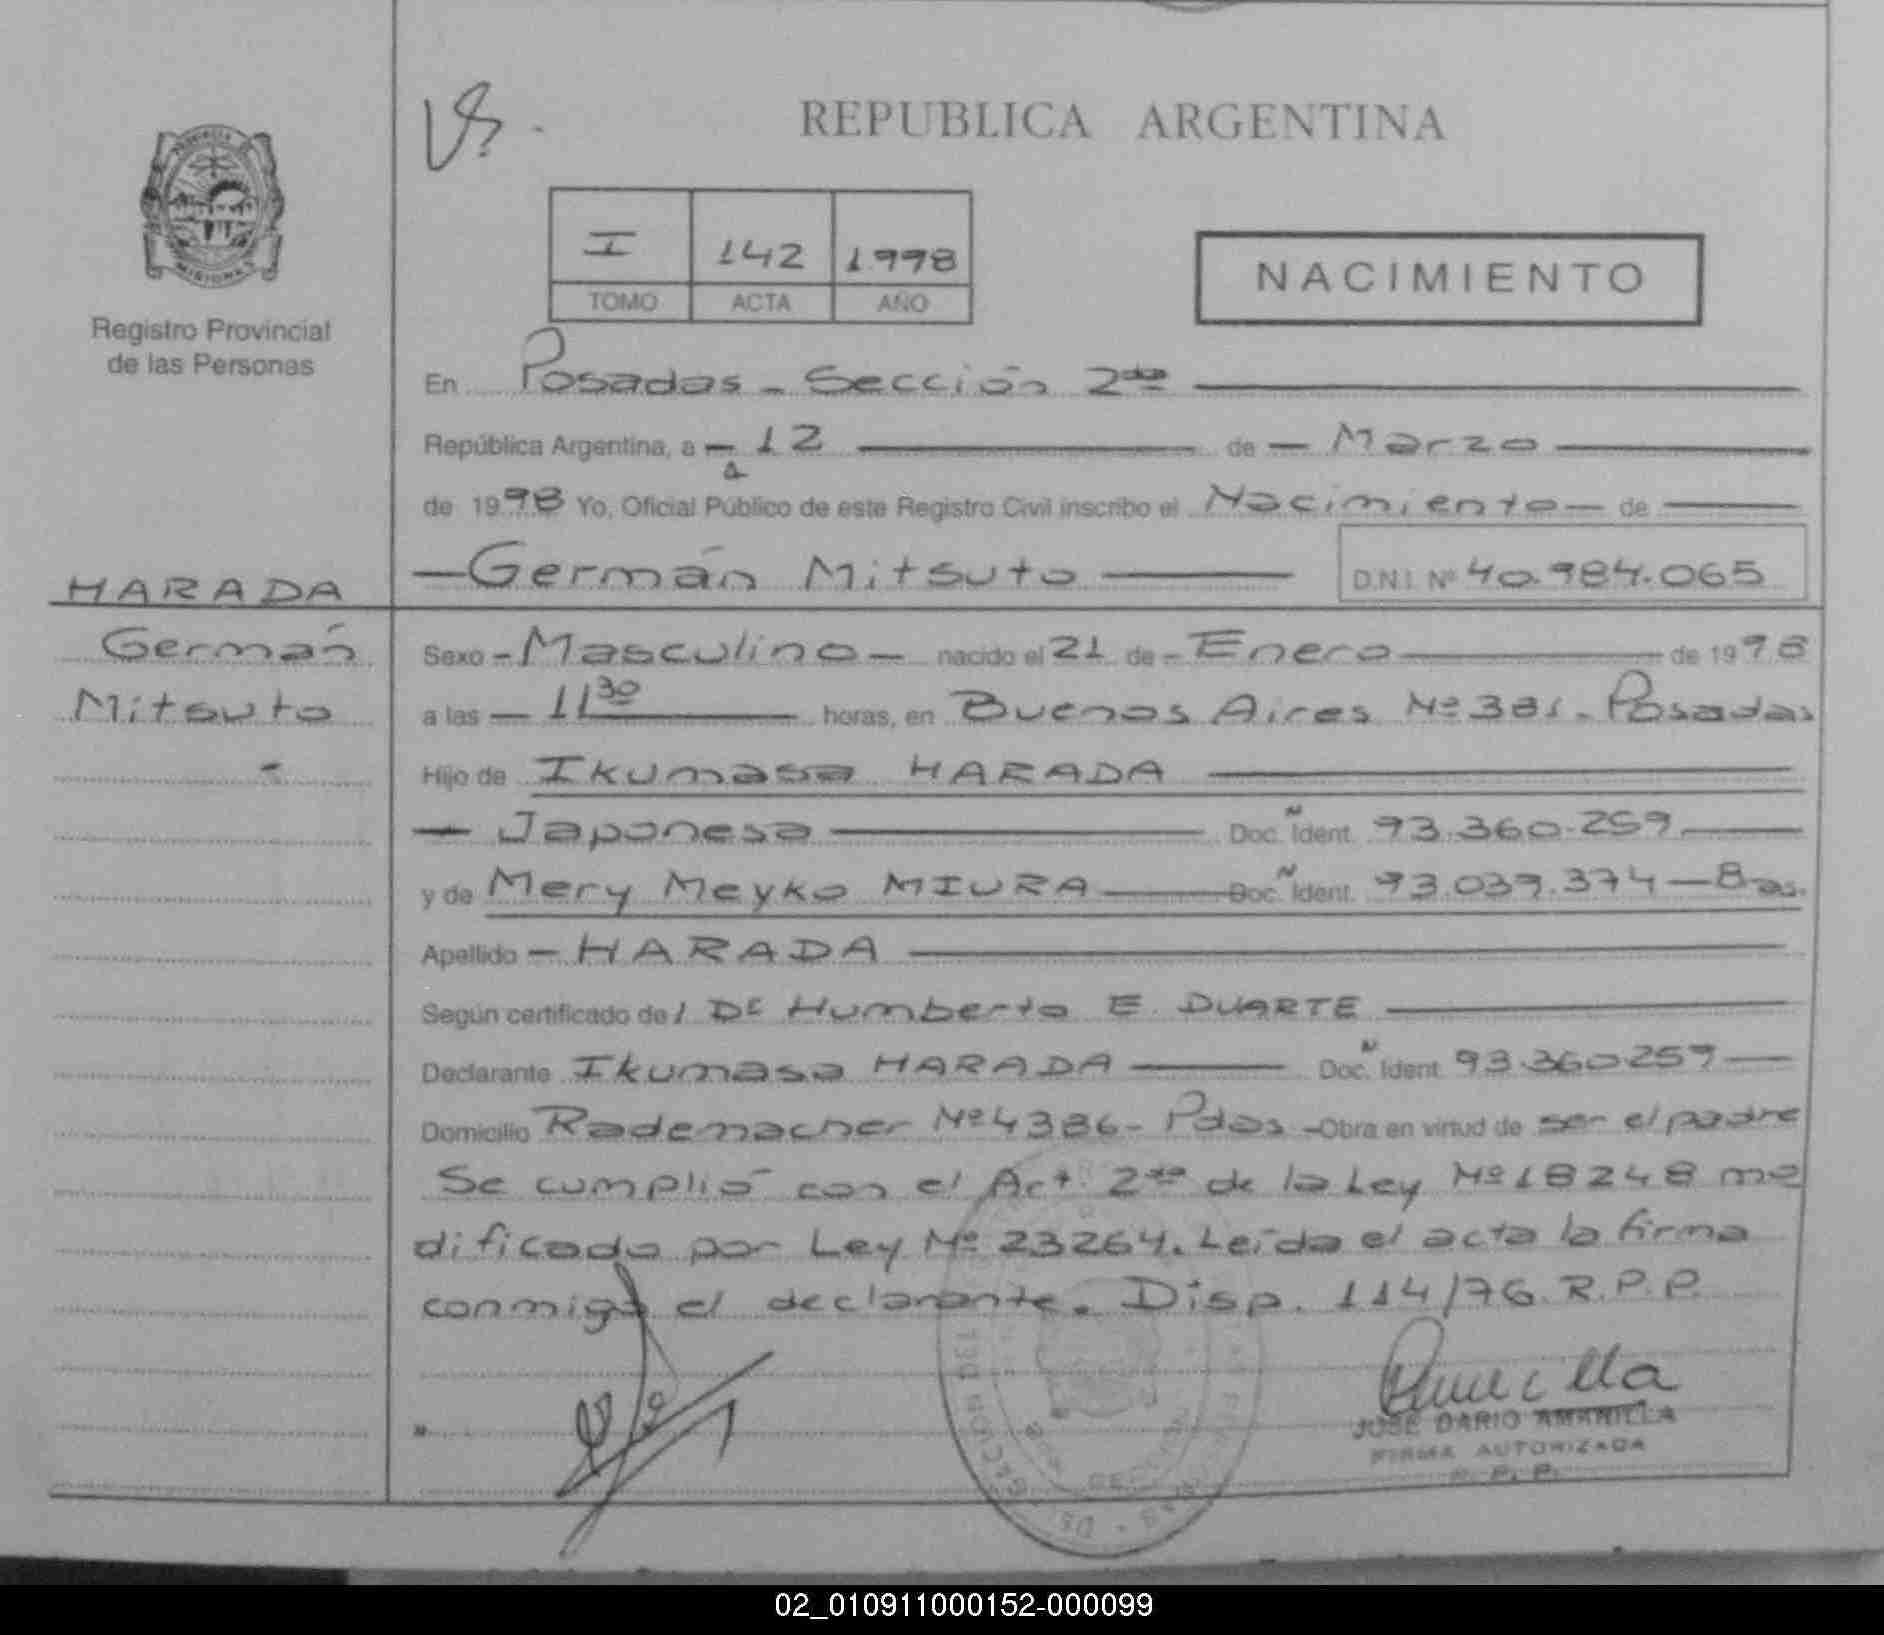 REPUBLICA ARGENTINA
PROVINCIA DE
MISIONES
Registro Provincial
de las Personas
I 142 1998
TOMO ACTA AÑO
NACIMIENTO
En Posadas - Sección 2da
República Argentina, a - 12 de - Marzo
de 1998 Yo, Oficial Público de este Registro Civil inscribo el Nacimiento - de
- Germán Mitsuto D.N.I. Nº 40.984.065
HARADA
Germán
Mitsuto
-
Sexo - Masculino - nacido el 21 de - Enero de 1998
a las - 11 30 horas, en Buenos Aires Nº 381. Posadas
Hijo de Ikumasa HARADA
- Japonesa Doc. Ident. 93.360.259
y de Mery Meyko MIURA Doc. Ident. 93.039.374 - Bas.
Apellido - HARADA
Según certificado del Dr Humberto E. DUARTE
Declarante Ikumasa HARADA Doc. Ident. 93.360.259
Domicilio Rademacher Nº 4386 - Pdas - Obra en virtud de ser el padre
Se cumplió con el Art. 2do de la Ley Nº 18248 mo
dificado por Ley Nº 23264. Leída el acta la firma
conmigo el declarante. Disp. 114/76 R.P.P.
JOSE DARIO AMARILLA
FIRMA AUTORIZADA
R. P. P.
02_010911000152-000099